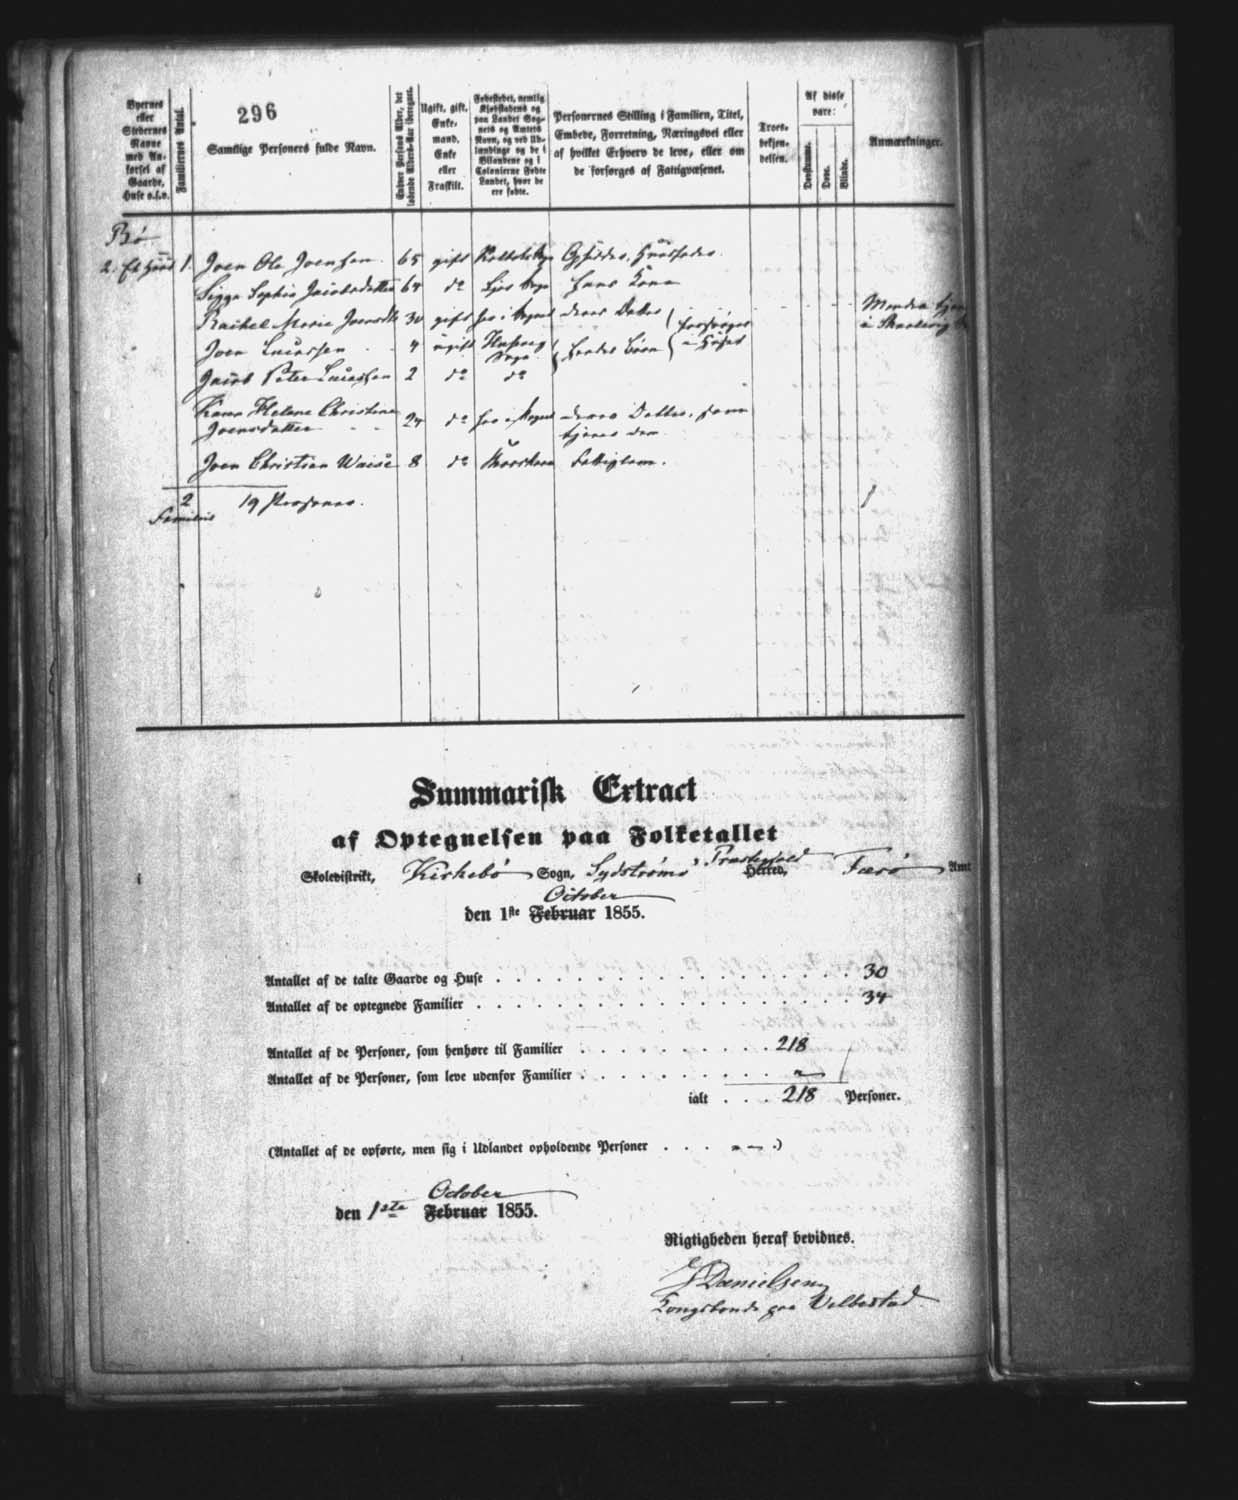 296
Byernes eller Stedernes Navne med Anførsel af Gaarde, Huse o.s.v.
Familiernes Antal.
Samtlige Personers fulde Navn.
Enhver Persons Alder, det løbende Alders-Aar iberegnet.
Ugift, gift, Enkemand, Enke eller Fraskilt.
Fødestedet, nemlig Kjøbstadens og paa Landet Sognets og Amtets Navn, og ved Udlændinge og de i Bilandene og i Colonierne Fødte Landet, hvor de ere fødte.
Personernes Stilling i Familien, Titel, Embede, Forretning, Næringsvei eller af hvilket Erhverv de leve, eller om de forsørges af Fattigvæsenet.
Troesbekjendelsen.
Af disse vare:
Døvstumme.
Døve.
Blinde.
Anmærkninger.
Bø
2. Et Huus 1. Joen Ole Joensen 65 gift Huusfader
Sigga Sophie Jacobsdatter 64 do hans Kone
Rachel Marie Joensdtr 30 gift her i Sognet deres Datter
Manden
forsørges i Huset
Joen 4 ugift Sogn hendes Børn
Jacob Peter 2 do do
Helene Christine Joensdatter 24 do her i Sognet deres Datter, som tjener dem
Joen Christian 8 do Thorshavn Fattiglem.
2 Familier 19 Personer.
Summarisk Extract
af Optegnelsen paa Folketallet
Skoledistrikt, Kirkebø Sogn, Sydstrømø Præstegjeld Herred, Færø Amt
October
den 1ste Februar 1855.
Antallet af de talte Gaarde og Huse . . . 30
Antallet af de optegnede Familier . . . 34
Antallet af de Personer, som henhøre til Familier . . . 218
Antallet af de Personer, som leve udenfor Familier . . . "
ialt . . . 218 Personer.
(Antallet af de opførte, men sig i Udlandet opholdende Personer . . . " — .)
October
den 1ste Februar 1855.
Rigtigheden heraf bevidnes.
J Danielsen
Kongsbonde paa Velbestad